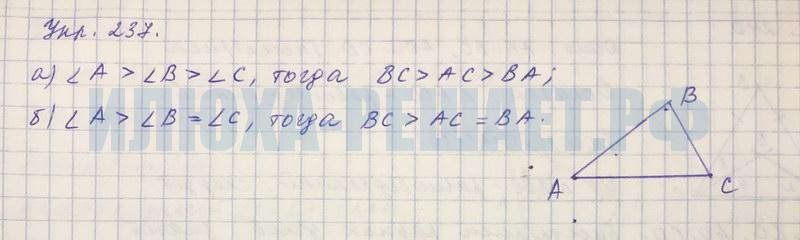 Упр. 237.
а) ∠A > ∠B > ∠C, тогда BC > AC > BA;
б) ∠A > ∠B = ∠C, тогда BC > AC = BA.
ИЛЮХА-РЕШАЕТ.РФ
B
A
C